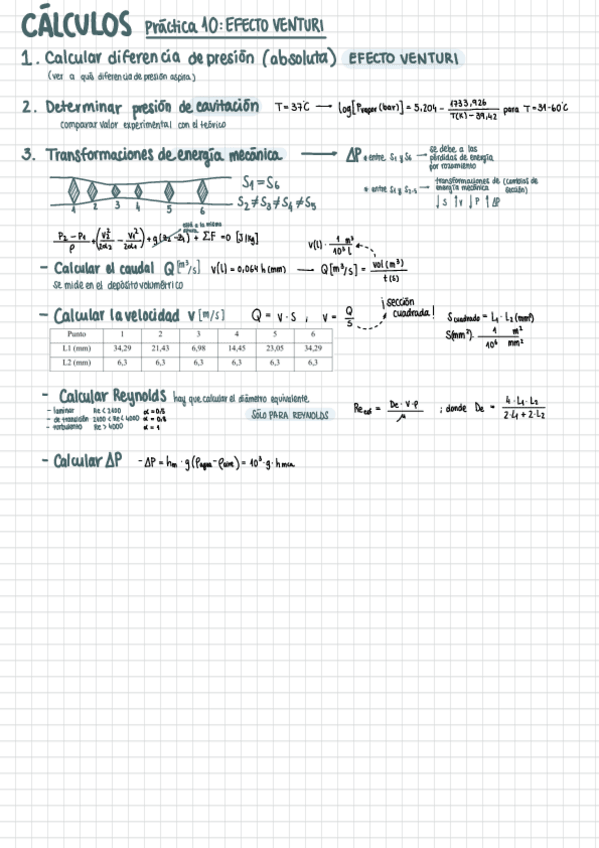 CÁLCULOS Práctica 10: EFECTO VENTURI
1. Calcular diferencia de presión (absoluta) EFECTO VENTURI
(ver a qué diferencia de presión aspira)
2. Determinar presión de cavitación T=37°C → log[Pvapor(bar)] = 5,204 - 1733,926 / (T(K) - 39,42) para T=31-60°C
comparar valor experimental con el teórico
3. Transformaciones de energía mecánica → ΔP
* entre S1 y S6 → se debe a las pérdidas de energía por rozamiento
* entre S1 y S2-5 → transformaciones de energía mecánica (cambios de sección)
↓S ↑v ↓P ↑ΔP
S1 = S6
S2 ≠ S3 ≠ S4 ≠ S5
1 2 3 4 5 6
está a la misma
(P2 - P1)/ρ + (v2²/2α2 - v1²/2α1) + g(z2 - z1) + ΣF = 0 [J/kg]
v(l) · 1 m³ / 10³ l
- Calcular el caudal Q [m³/s] v(l) = 0,064 h (mm) → Q[m³/s] = vol (m³) / t(s)
se mide en el depósito volumétrico
- Calcular la velocidad v [m/s] Q = v · S , v = Q/S
¡sección cuadrada!
Scuadrado = L1 · L2 (mm²)
S(mm²) · 1 m² / 10⁶ mm²
Punto 1 2 3 4 5 6
L1 (mm) 34,29 21,43 6,98 14,45 23,05 34,29
L2 (mm) 6,3 6,3 6,3 6,3 6,3 6,3
- Calcular Reynolds hay que calcular el diámetro equivalente
- laminar Re < 2100 α = 0,5
- de transición 2100 < Re < 4000
- turbulento Re > 4000 α = 1
SÓLO PARA REYNOLDS
= De · v · ρ / μ ; donde De = 4 · L1 · L2 / 2·L1 + 2·L2
- Calcular ΔP -ΔP = hm · g (ρagua - ρaire) = 10³ · g · hmca